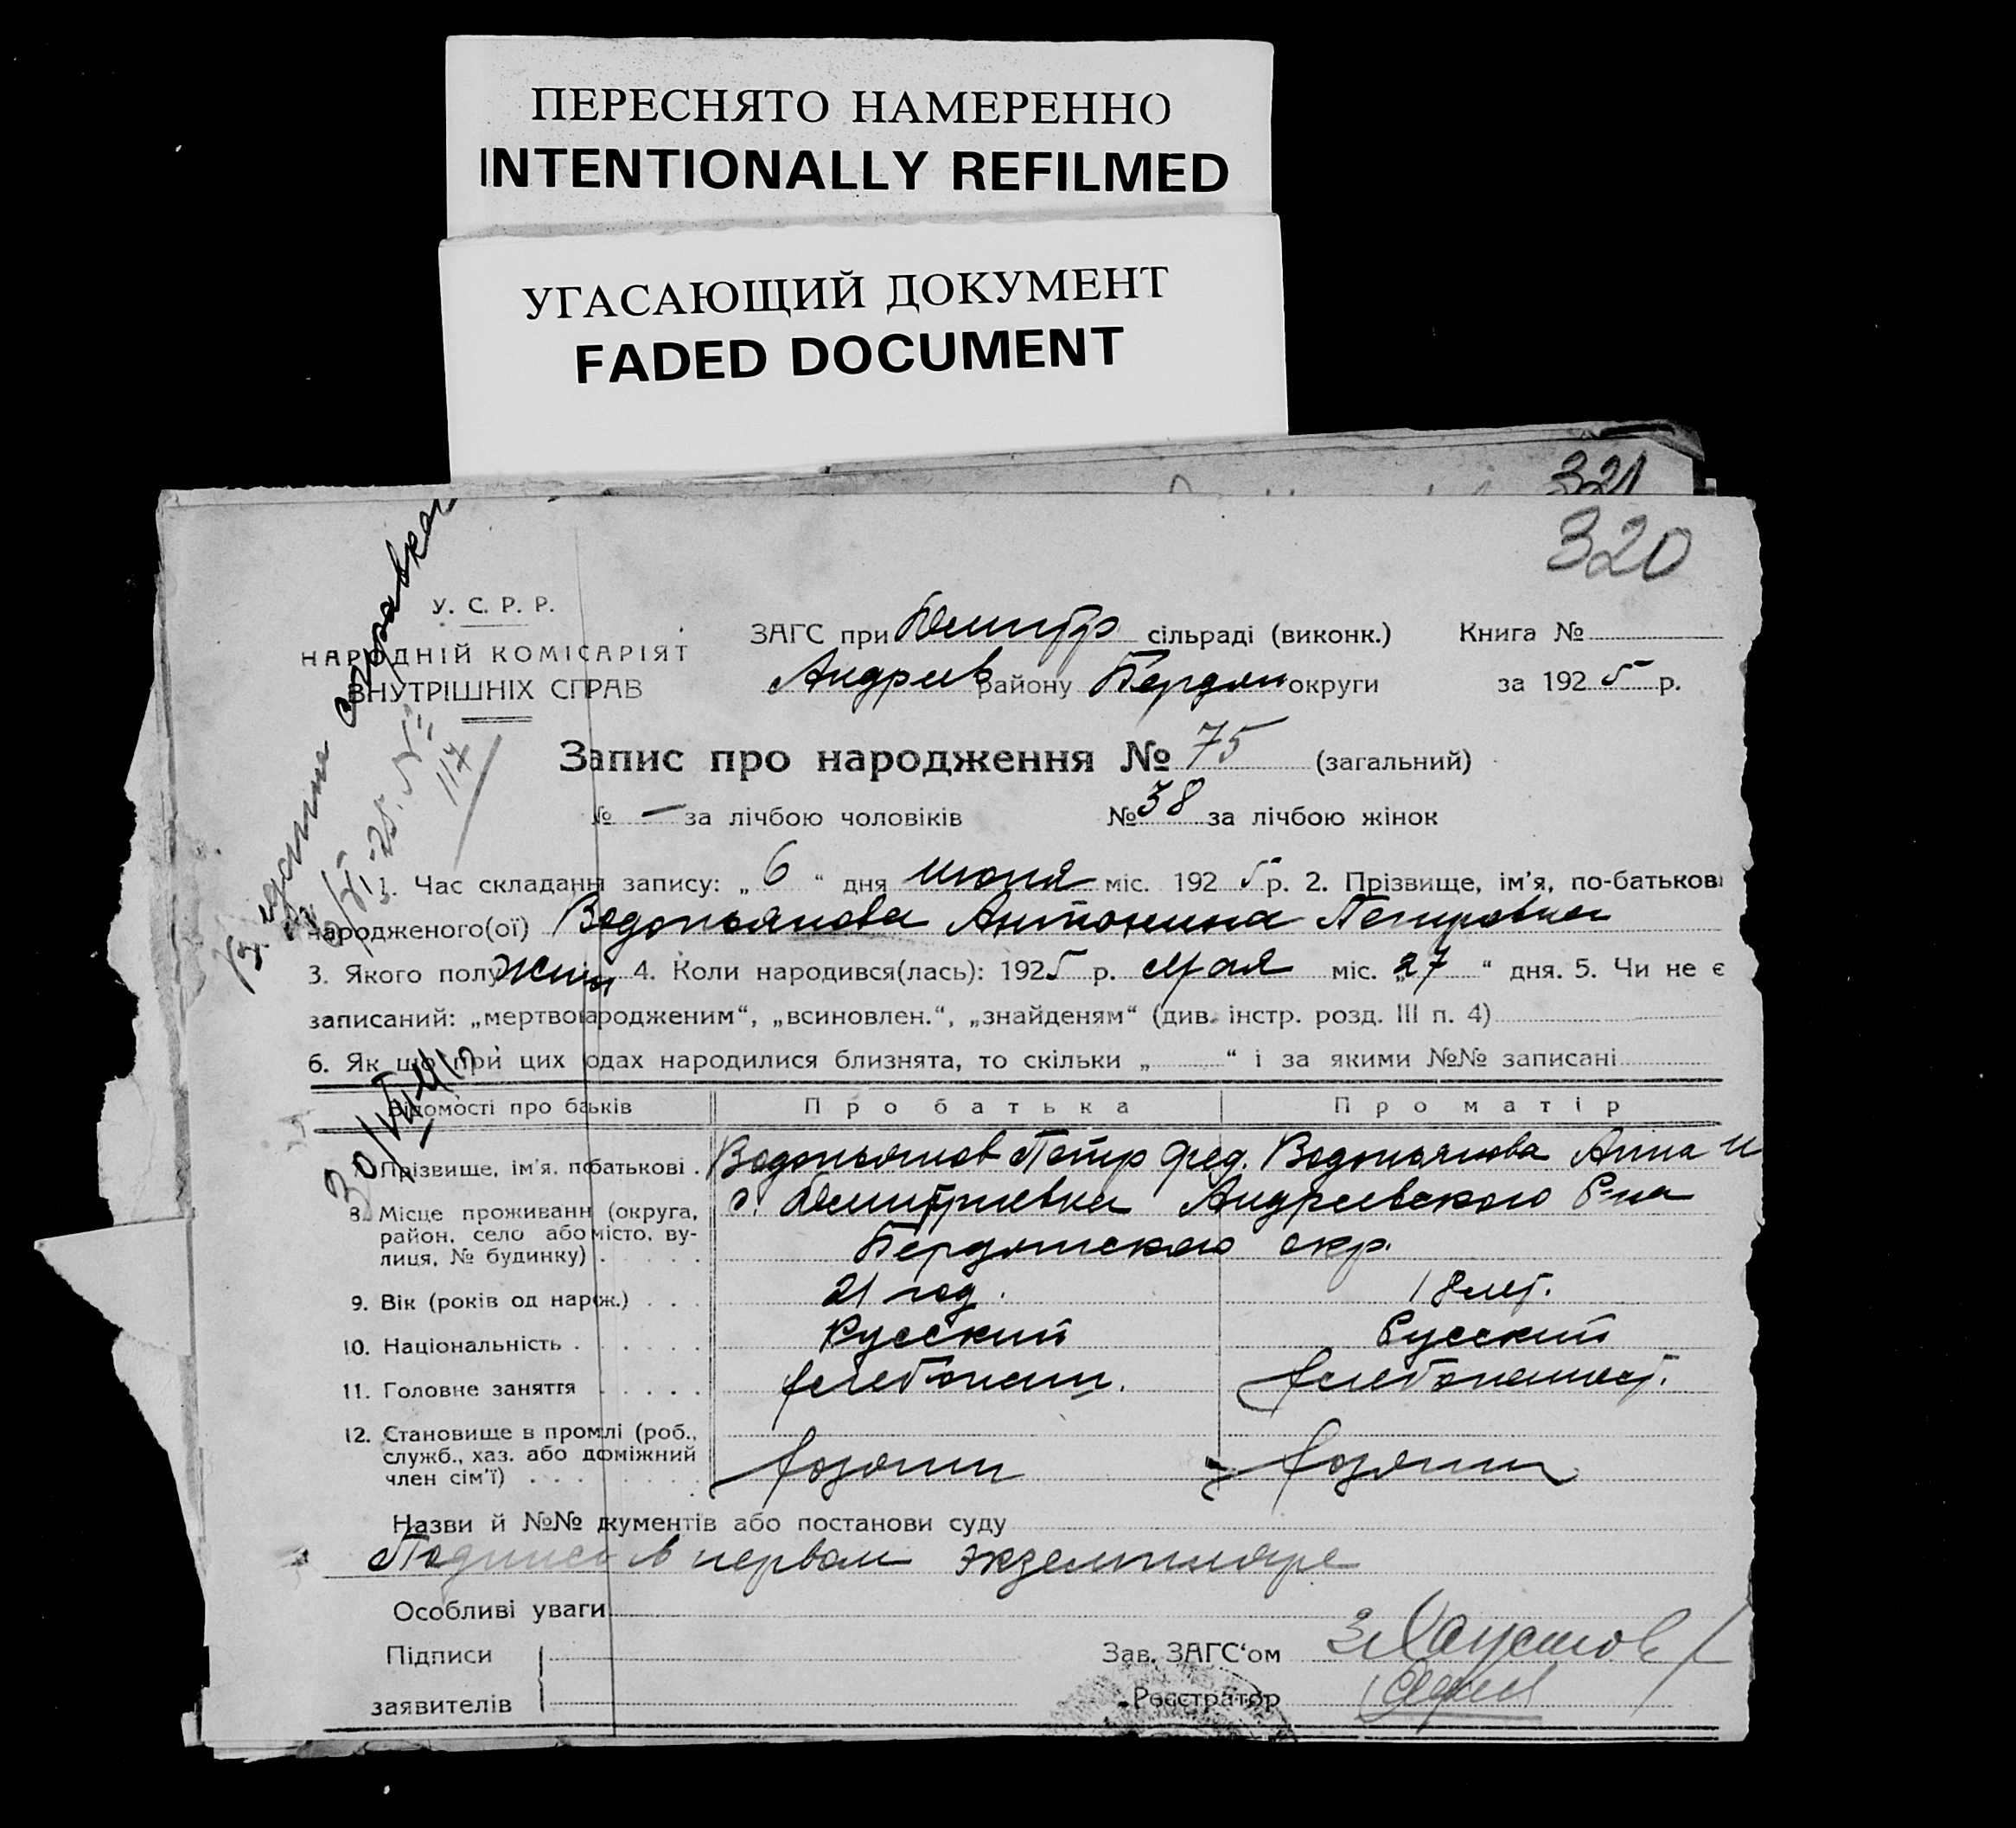 ПЕРЕСНЯТО НАМЕРЕННО
INTENTIONALLY REFILMED
УГАСАЮЩИЙ ДОКУМЕНТ
FADED DOCUMENT
321
320
У. С. Р. Р.
НАРОДНІЙ КОМІСАРІЯТ
ВНУТРІШНІХ СПРАВ
ЗАГС при Дмитр сільраді (виконк.) Книга №
Андреев району Бердян округи за 1925 р.
Запис про народження № 75 (загальний)
№ — за лічбою чоловіків № 38 за лічбою жінок
1. Час складання запису: „ 6 “ дня июня міс. 1925 р. 2. Прізвище, ім'я, по-батькові
народженого(ої) Водопьянова Антонина Петровна
3. Якого полу жен 4. Коли народився(лась): 1925 р. мая міс. „27 “ дня. 5. Чи не є
записаний: „мертвонародженим“, „всиновлен.“, „знайденям“ (див. інстр. розд. III п. 4)
6. Як що при цих родах народилися близнята, то скільки „ “ і за якими №№ записані
Відомості про батьків Про батька Про матір
Прізвище, ім'я, по батькові . Водопьянов Петр Фед. Водопьянова Анна И
8. Місце проживання (округа, район, село або місто, вулиця, № будинку) с. Дмитриевка Андреевского р-на
Бердянского окр.
9. Вік (років од нарож.) . . . 21 год. 18 лет.
10. Національність . . . . . . Русский Русский
11. Головне заняття . . . . . хлебопаш. хлебопашест.
12. Становище в промлі (роб.,
служб., хаз. або доміжний
член сім'ї) . . . . . . . хозяин хозяин
Назви й №№ документів або постанови суду
Подписи в первом экземпляре
Особливі уваги
Підписи
заявителів
Зав. ЗАГС'ом
Реєстратор